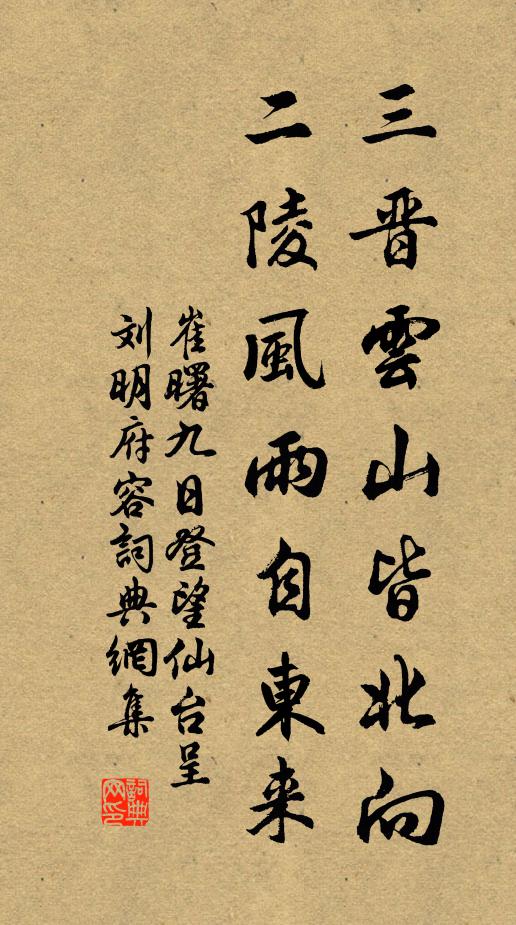 三晋雲山皆北向
二陵風雨自東来
崔曙九日登望仙台呈
刘明府容詞典網集
詞典
网印